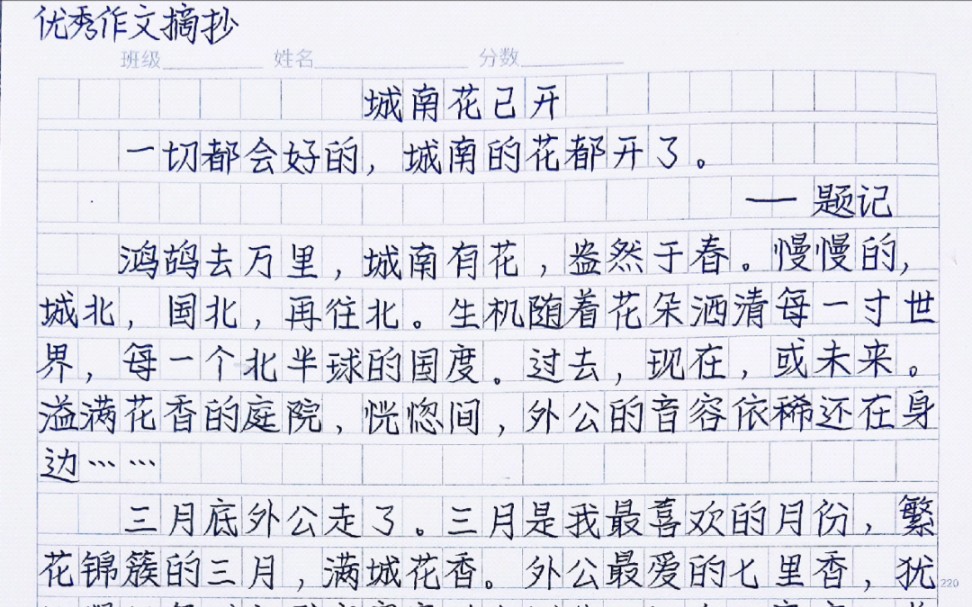 优秀作文摘抄
班级 姓名 分数
城南花已开
一切都会好的，城南的花都开了。
—— 题记
鸿鹄去万里，城南有花，盎然于春。慢慢的，
城北，国北，再往北。生机随着花朵洒清每一寸世
界，每一个北半球的国度。过去，现在，或未来。
溢满花香的庭院，恍惚间，外公的音容依稀还在身
边……
三月底外公走了。三月是我最喜欢的月份，繁
花锦簇的三月，满城花香。外公最爱的七里香，犹
220